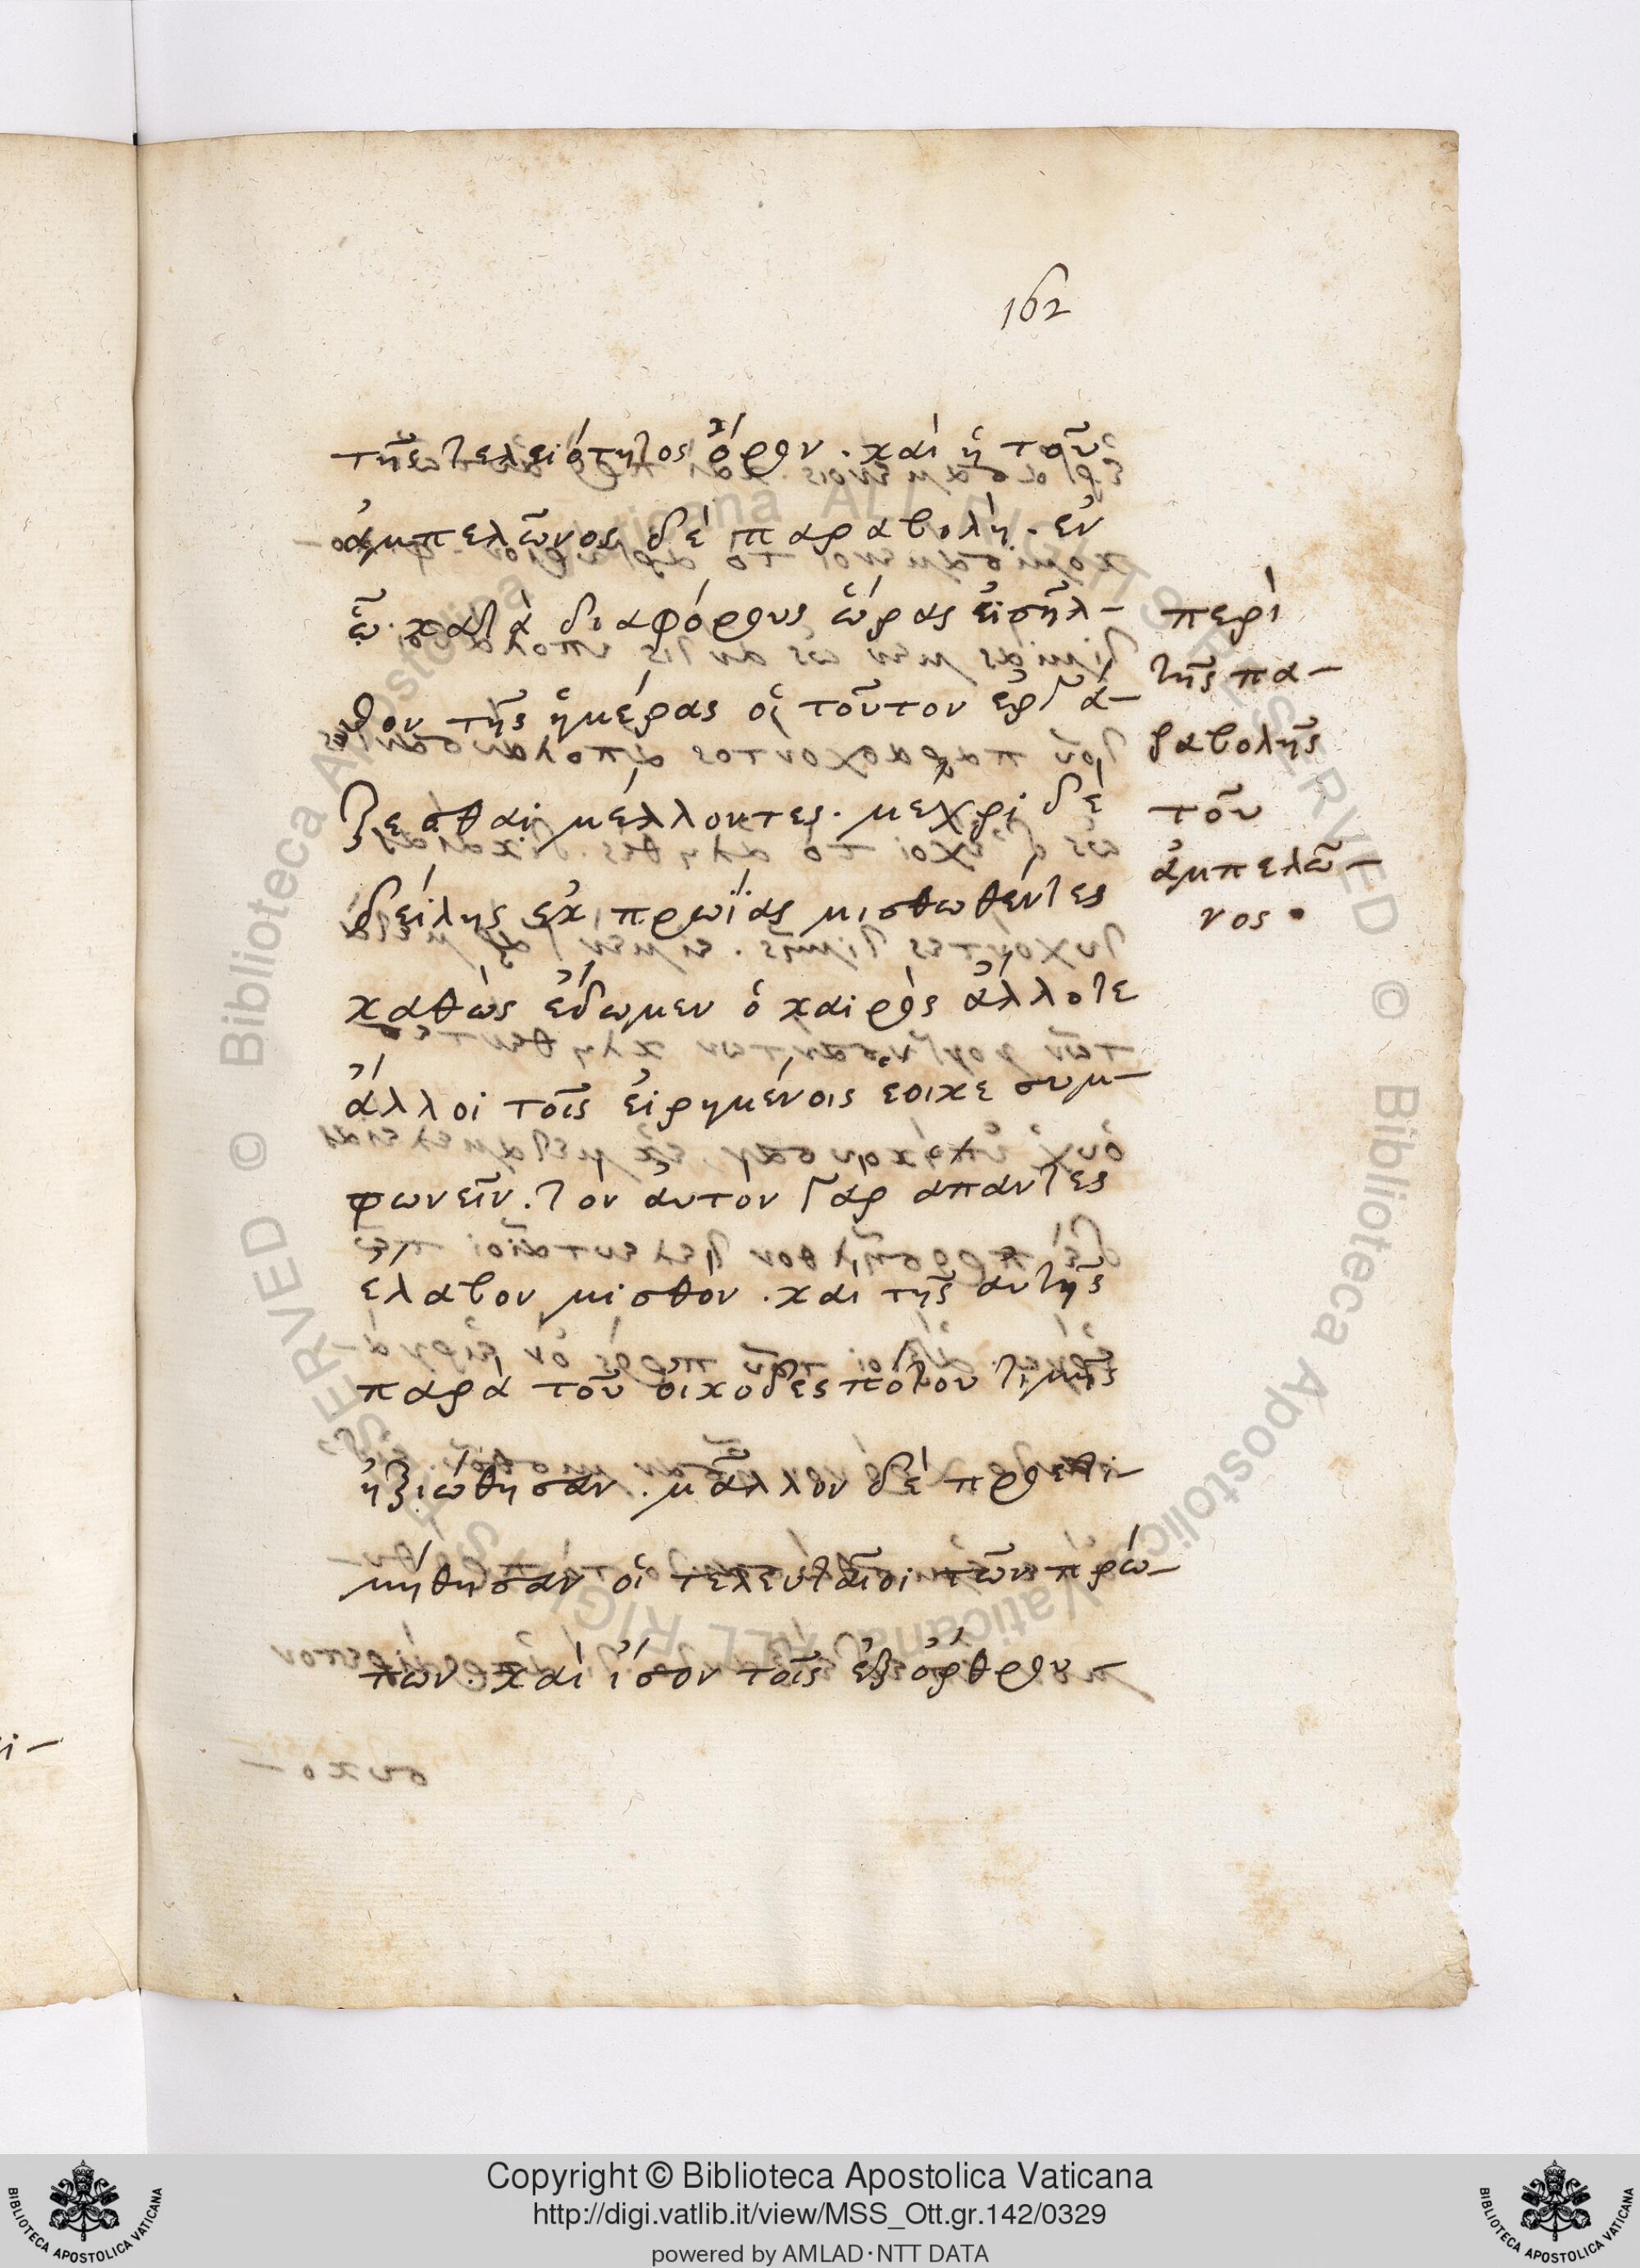 162
τῆς τελειότητος ὅρον. καὶ ἡ τοῦ
ἀμπελῶνος δὲ παραβολὴ. ἐν
ᾧ κατὰ διαφόρους ὥρας εἰσῆλ-
θον τῆς ἡμέρας οἱ τοῦτον ἐργά-
ζεσθαι μέλλοντες. μέχρι δὲ
δείλης ἐκ πρωΐας μισθωθέντες
καθὼς ἐδωμεν ὁ καιρὸς ἄλλοτε
ἄλλοι τοῖς εἰρημένοις ἔοικε συμ-
φωνεῖν. τὸν ἀυτὸν γὰρ ἅπαντες
ἔλαβον μισθὸν. καὶ τῆς αὐτῆς
παρὰ τοῦ οἰκοδεσπότου τιμῆς
ἠξιώθησαν. μᾶλλον δὲ προετι-
μήθησαν οἱ τελευταῖοι τῶν πρώ-
των. καὶ ἴσον τοῖς ἐξ ὄρθρου
περὶ
τῆς πα-
ραβολῆς
τοῦ
ἀμπελῶ-
νος
Copyright © Biblioteca Apostolica Vaticana
http://digi.vatlib.it/view/MSS_Ott.gr.142/0329
powered by AMLAD·NTT DATA
BIBLIOTECA APOSTOLICA VATICANA
BIBLIOTECA APOSTOLICA VATICANA